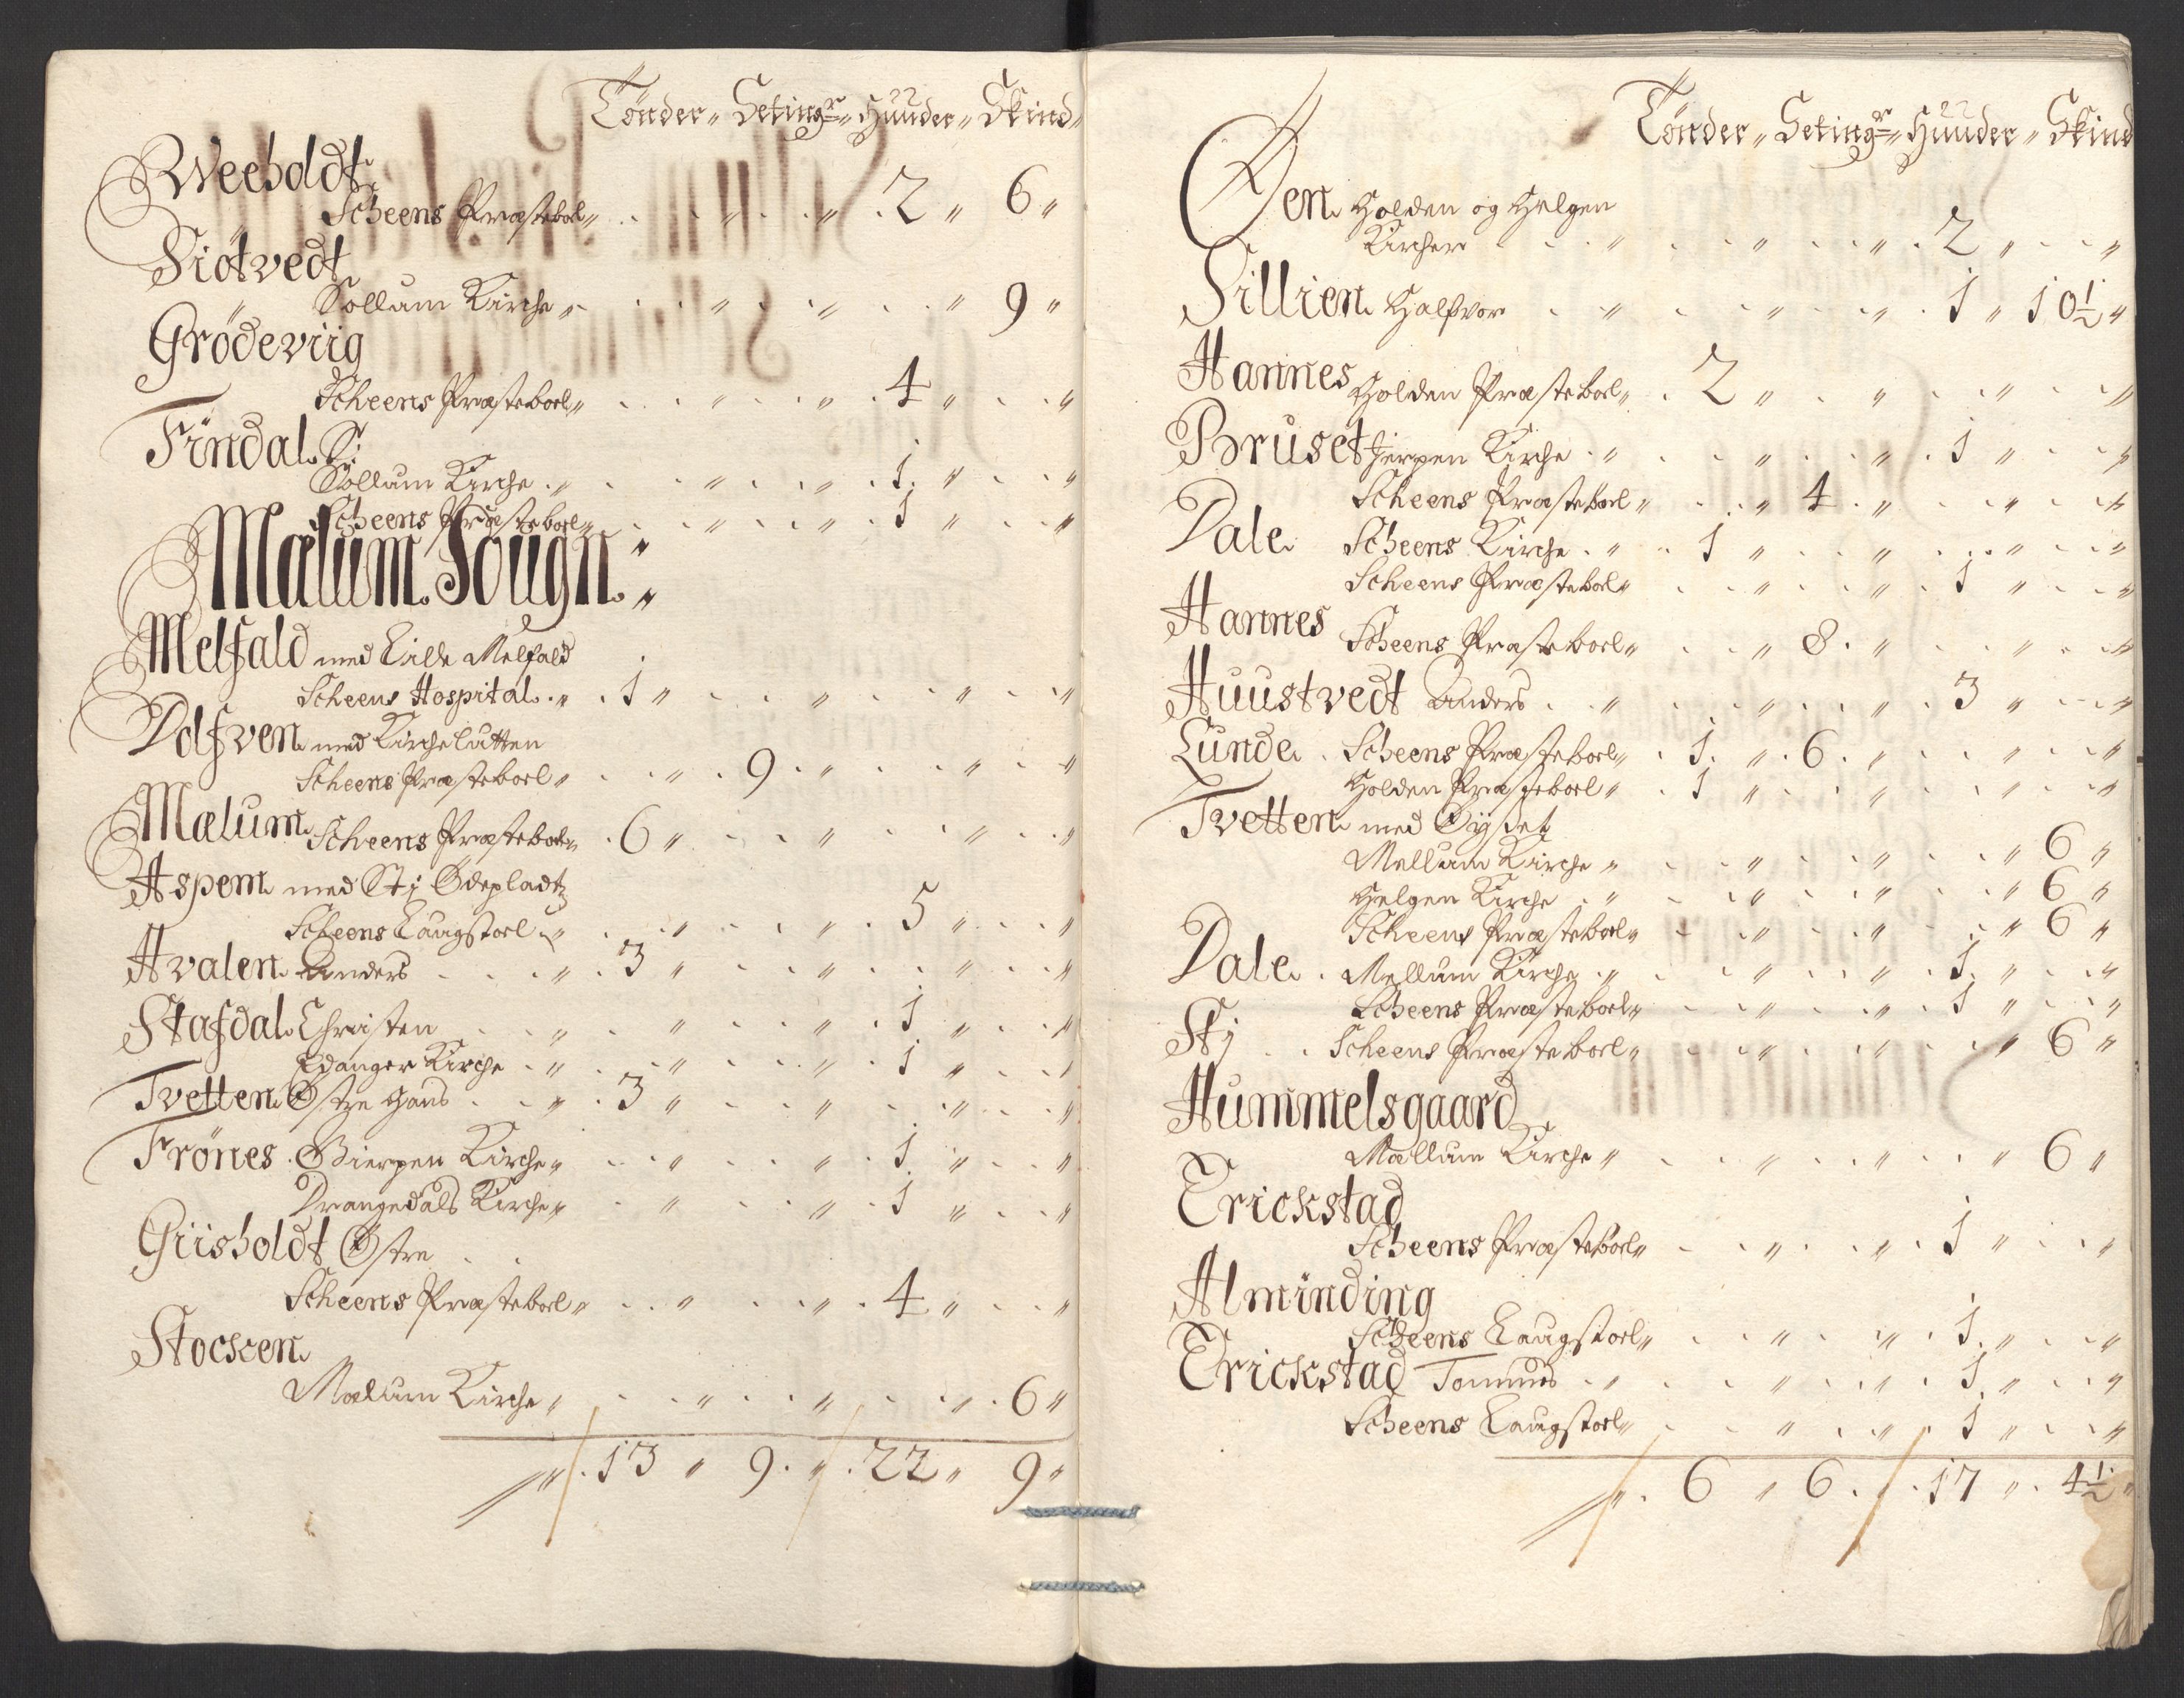 Tönder „ Seting:r „ Huuder „ Skind „
Rveeholdt
Scheens Præsteboel „ . . „ . . „ . 2 „ 6 „
Siötvedt
Sollum Kirche „ . . „ . . „ . . „ 9 „
Grödeviig
Scheens Præsteboel „ . . „ . . „ . 4 „ . . „
Findal
Sollum Kirche . „ . . „ . . „ . 1 . „ . . „
Scheens Præsteboel „ . . „ . . „ . 1 „ . . „
Mælum Sougn „
Melfald med Lille Melfald
Scheens Hospital . „ . 1 „ . . „ . . „ . . „
Dolfven med Kirchelutten
Scheens Præsteboel „ . . „ . 9 . „ . . „ . . „
Mælum Scheens Præsteboel „ . 6 „ . . „ . . „ . . „
Aspem med Stj Ødepladtz
Scheens Laugstoel „ . . „ . . „ . 5 „ . . „
Hvalen Anders . . . „ . 3 „ . . „ . . „ . . „
Stafdal Christen . . „ . . „ . . „ . 1 „ . . „
Edanger Kirche . „ . . „ . . „ . 1 „ . . „
Tvetten Østre Hans . . „ . 3 „ . . „ . . „ . . „
Frönes . Gierpen Kirche „ . . „ . . „ . 1 . „ . . „
Drangedals Kirche „ . . „ . . „ . 1 „ . . „
Griisholdt Østre . .
Scheens Præsteboel „ . . „ . . „ . 4 „ . . „
Stocken
Mælum Kirche „ . . „ . . „ . . „ . 6 „
„ . 13 „ 9 . „ . 22 „ 9 „
Tönder „ Seting:r „ Huuder „ Skind
Øen Holden og Helgen
Kircher . . . „ . . „ . . „ . 2 „ . . „
Sillien Halfvor . . „ . . „ . . „ . 1 „ 10½ „
Hannes Holden Præsteboel „ . 2 „ . . „ . . „ . . „
Bruset Jerpen Kirche . „ . . „ . . „ . 1 „ . . „
Scheens Præsteboel „ . . „ 4 . „ . . „ . . „
Dale Scheens Kirche . „ . 1 „ . . „ . . „ . . „
Scheens Præsteboel „ . . „ . . „ . 1 „ . . „
Hannes Scheens Præsteboel „ . . „ 8 . „ . . „ . . „
Huustvedt Anders . . „ . . „ . . „ . 3 „ . . „
Lunde . Scheens Præsteboel „ . 1 . „ . 6 . „ . . „ . . „
Holden Præsteboel „ . 1 „ . . „ . . „ . . „
Tvetten med Øyset
Mellum Kirche „ . . „ . . „ . . „ 6 „
Helgen Kirche . „ . . „ . . „ . . „ 6 „
Scheens Præsteboel „ . . „ . . „ . . „ 6 „
Dale . Mellum Kirche . „ . . „ . . „ . 1 . „ . . „
Scheens Præsteboel „ . . „ . . „ . 1 „ . . „
Stj . . Scheens Præsteboel „ . . „ . . „ . . „ 6 „
Hummelsgaard
Mællum Kirche „ . . „ . . „ . . „ 6 „
Erickstad
Scheens Præsteboel „ . . „ . . „ . 1 „ . . „
Alminding
Scheens Laugstoel „ . . „ . . „ . 1 . „ . . „
Erickstad Tommes . „ . . „ . . „ . 1 . „ . . „
Scheens Laugstoel „ . . „ . . „ . 1 „ . . „
„ . 6 „ 6 . „ . 17 „ . 4½ „